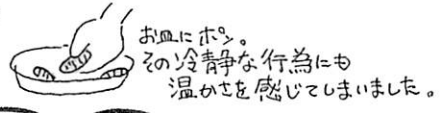 お皿にポン。
その冷静な行為にも
温かさを感じてしまいました。